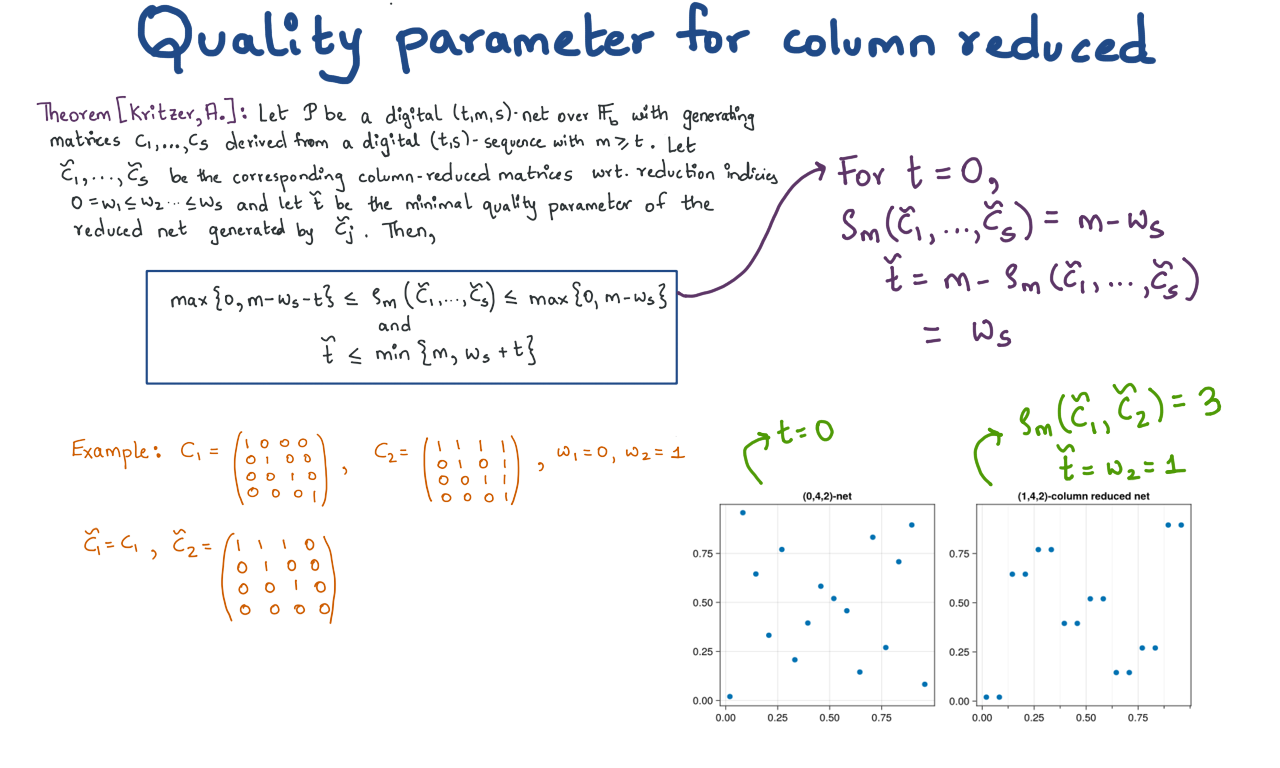 Quality parameter for column reduced
Theorem [Kritzer, A.]: Let P be a digital (t,m,s)-net over 𝔽_b with generating
matrices C₁,...,C_s derived from a digital (t,s)-sequence with m ≥ t. Let
C̆₁,...,C̆_s be the corresponding column-reduced matrices wrt. reduction indicies
0 = w₁ ≤ w₂ ... ≤ w_s and let t̆ be the minimal quality parameter of the
reduced net generated by C̆_j. Then,
max{0, m-w_s-t} ≤ ρ_m(C̆₁,...,C̆_s) ≤ max{0, m-w_s}
and
t̆ ≤ min{m, w_s + t}
For t = 0,
ρ_m(C̆₁,...,C̆_s) = m - w_s
t̆ = m - ρ_m(C̆₁,...,C̆_s)
= w_s
Example: C₁ = (1 0 0 0
0 1 0 0
0 0 1 0
0 0 0 1), C₂ = (1 1 1 1
0 1 0 1
0 0 1 1
0 0 0 1), w₁ = 0, w₂ = 1
C̆₁ = C₁, C̆₂ = (1 1 1 0
0 1 0 0
0 0 1 0
0 0 0 0)
t = 0
ρ_m(C̆₁, C̆₂) = 3
t̆ = w₂ = 1
(0,4,2)-net
0.75
0.50
0.25
0.00
0.00 0.25 0.50 0.75
(1,4,2)-column reduced net
0.75
0.50
0.25
0.00
0.00 0.25 0.50 0.75